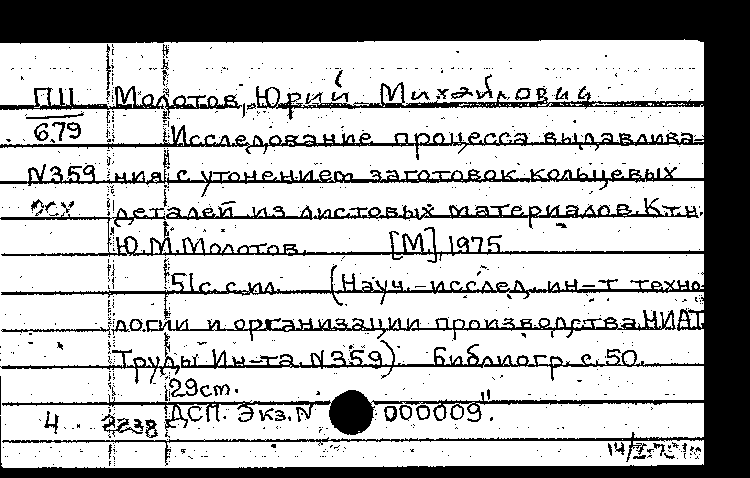 ПЦ Молотов, Юрий Михайлович
6.79 Исследование процесса выдавлива-
N359 ния с утонением заготовок кольцевых
ОСХ деталей из листовых материалов. К.т.н.
Ю.М.Молотов. [М.], 1975
51с. с ил. (Науч.-исслед. ин-т техно-
логии и организации производства НИАТ.
Труды Ин-та. N359). Библиогр. с. 50.
29см.
4 2238 ДСП. Экз. N 000009".